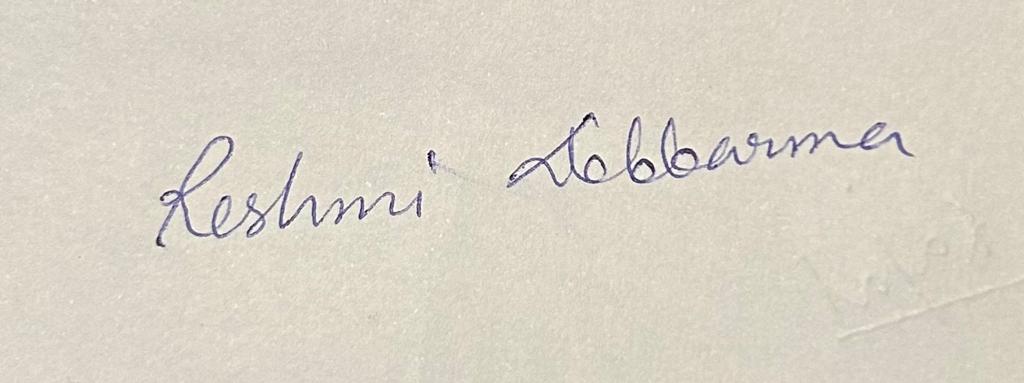 Reshmi Debbarma